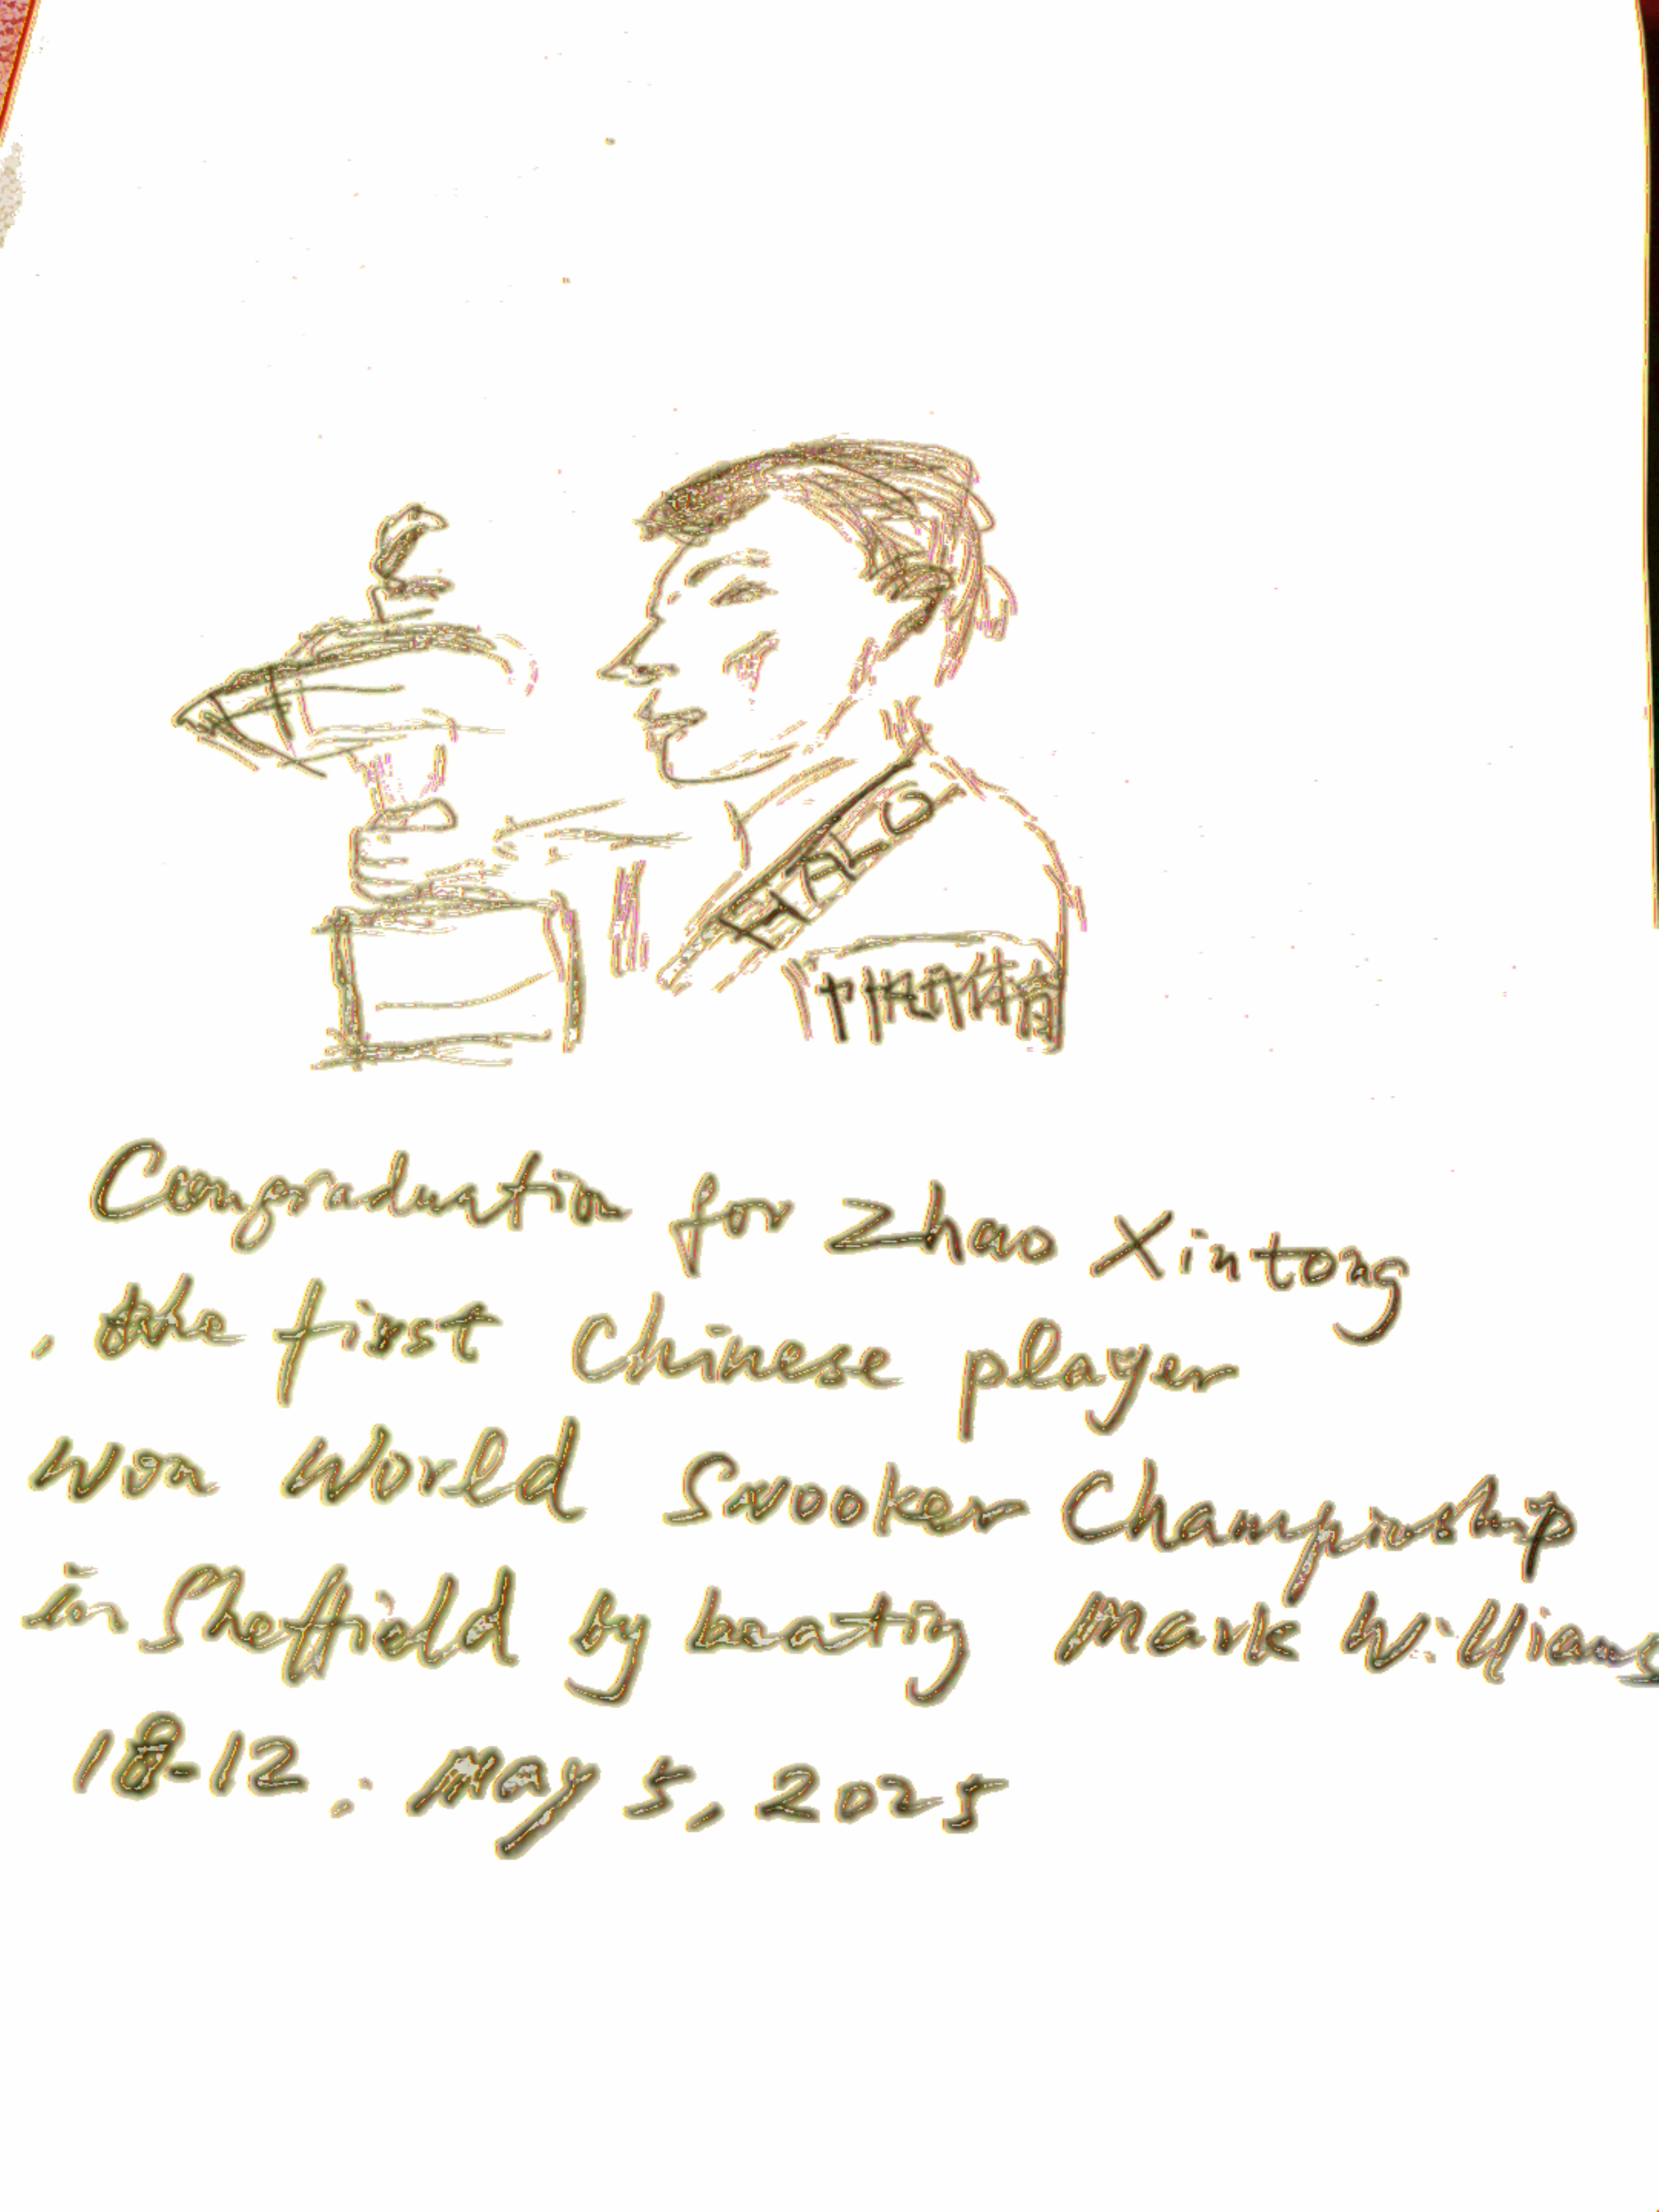 HALO
体育
Congraduation for Zhao Xintong
, the first Chinese player
won World Snooker Championship
in Sheffield by beating Mark Williams
18-12. May 5, 2025